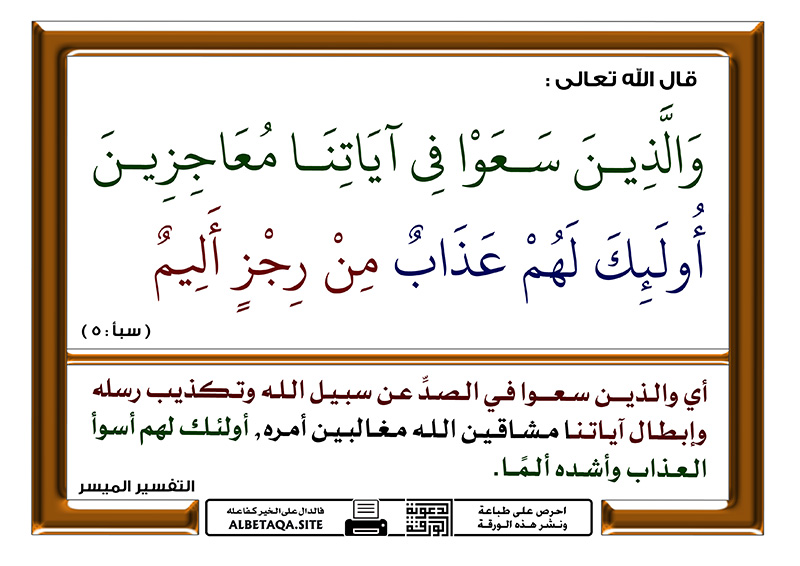 قال الله تعالى :
وَالَّذِيـنَ سَـعَوْا فِي آيَاتِنَـا مُعَاجِزِيـنَ
أُولَـئِكَ لَهُمْ عَذَابٌ مِنْ رِجْزٍ أَلِيمٌ
( سبأ : ٥ )
أي والذيـن سعـوا في الصدِّ عن سبيل الله وتـكذيب رسله
وإبطال آياتنا مشاقين الله مغالبين أمره, أولئك لهم أسوأ
العذاب وأشده ألمًا.
التفسير الميسر
احرص على طباعة
ونشر هذه الورقة
الدعوية
الورقة
فالدال على الخير كفاعله
ALBETAQA.SITE